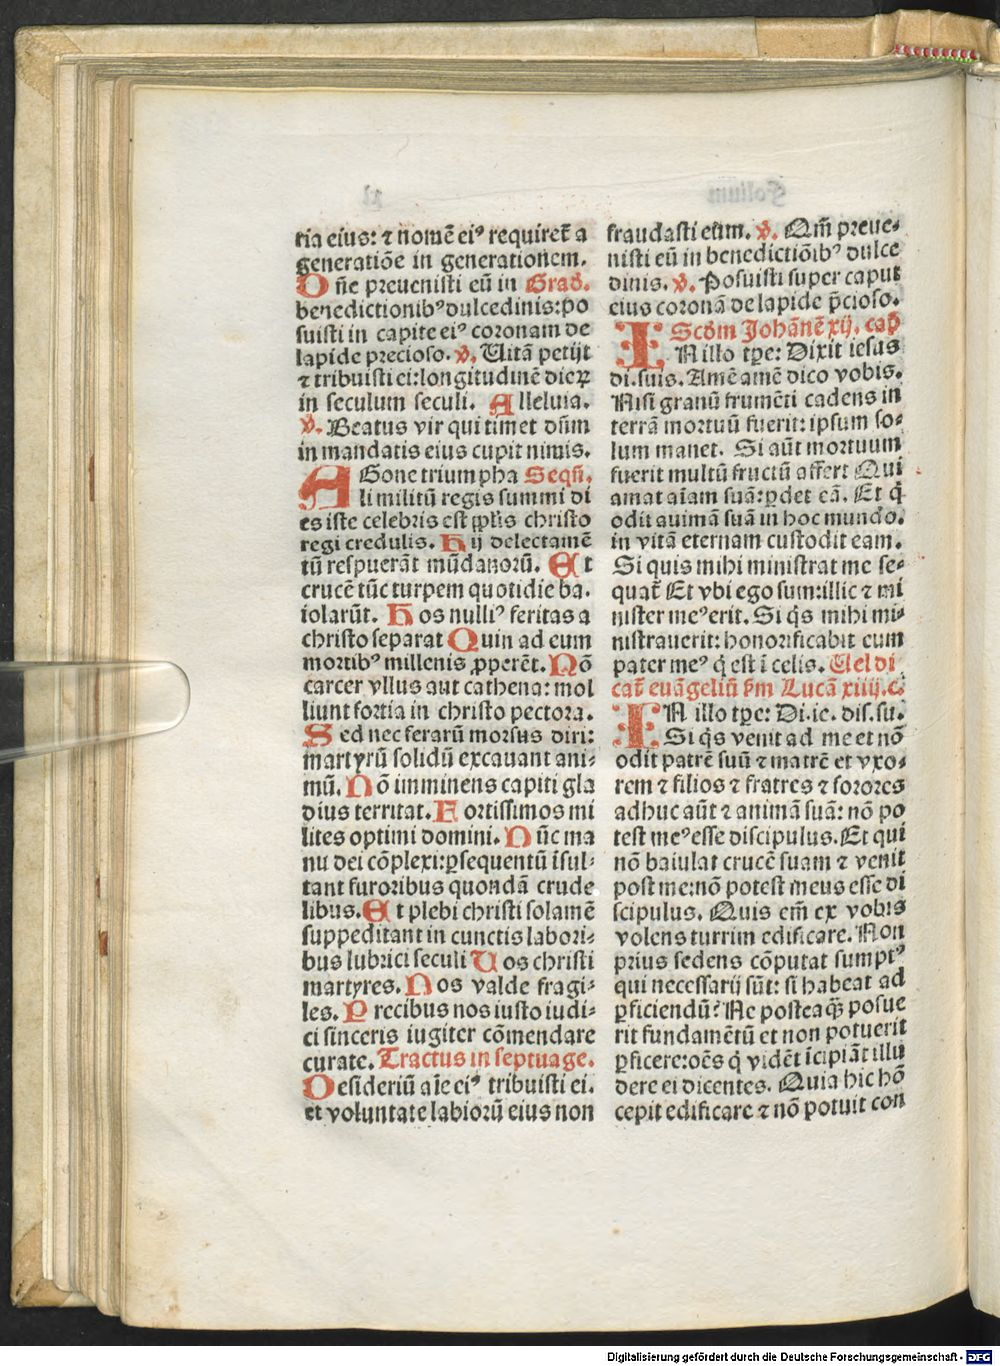 ria eius: ⁊ nomē ei⁹ requiret̄ a
generatiōe in generationem.
Dn̄e preuenisti eū in Grad.
benedictionib⁹ dulcedinis: po
suisti in capite ei⁹ coronam de
lapide precioso. ℣. Uitā petijt
⁊ tribuisti ei: longitudinē dieꝝ
in seculum seculi. Alleluia.
℣. Beatus vir qui timet dn̄m
in mandatis eius cupit nimis.
AGone triumpha Seqn̄.
li militū regis summi di
es iste celebris est ppl̄is christo
regi credulis. Hij delectamē
tū respuerāt mūdanorū. Et
crucē tūc turpem quotidie ba.
iolarūt. Hos nulli⁹ feritas a
christo separat Quin ad eum
mortib⁹ millenis ꝓperēt. Nō
carcer vllus aut cathena: mol
liunt fortia in christo pectora.
Sed nec ferarū morsus diri:
martyrū solidū excauant ani-
mū. Nō imminens capiti gla
dius territat. Fortissimos mi
lites optimi domini. Nūc ma
nu dei cōplexi: ꝑsequentū īsul-
tant furoribus quondā crude
libus. Et plebi christi solamē
suppeditant in cunctis labori-
bus lubrici seculi Uos christi
martyres. Nos valde fragi-
les. Precibus nos iusto iudi-
ci sinceris iugiter cōmendare
curate. Tractus in septuage.
Desideriū aīe ei⁹ tribuisti ei.
et voluntate labiorū eius non
fraudasti eum. ℣. Qm̄ preue-
nisti eū in benedictiōib⁹ dulce
dinis. ℣. Posuisti super caput
eius coronā de lapide p̄cioso.
Scdm Johānē xij. cap̄
IN illo tp̄e: Dixit iesus
di. suis. Amē amē dico vobis.
Nisi granū frumēti cadens in
terrā mortuū fuerit: ipsum so-
lum manet. Si aūt mortuum
fuerit multū fructū affert Qui
amat aīam suā: ꝑdet eā. Et q̄
odit animā suā in hoc mundo.
in vitā eternam custodit eam.
Si quis mihi ministrat me se-
quat̄ Et vbi ego sum: illic ⁊ mi
nister me⁹ erit. Si q̄s mihi mi-
nistrauerit: honorificabit eum
pater me⁹ q̄ est ī celis. Uel di
cat̄ euāgeliū s̄m Lucā xiiij. c.
IN illo tp̄e: Di. ie. dis. su.
Si q̄s venit ad me et nō
odit patrē suū ⁊ matrē et vxo-
rem ⁊ filios ⁊ fratres ⁊ sorores
adhuc aūt ⁊ animā suā: nō po
test me⁹ esse discipulus. Et qui
nō baiulat crucē suam ⁊ venit
post me: nō potest meus esse di
scipulus. Quis em̄ ex vobis
volens turrim edificare. Non
prius sedens cōputat sumpt⁹
qui necessarij sūt: si habeat ad
ꝑficiendū? Ne posteaq̄ꝫ posue
rit fundamētū et non potuerit
ꝑficere: oēs q̄ vidēt īcipiāt illu
dere ei dicentes. Quia hic hō
cepit edificare ⁊ nō potuit con
Digitalisierung gefördert durch die Deutsche Forschungsgemeinschaft - DFG